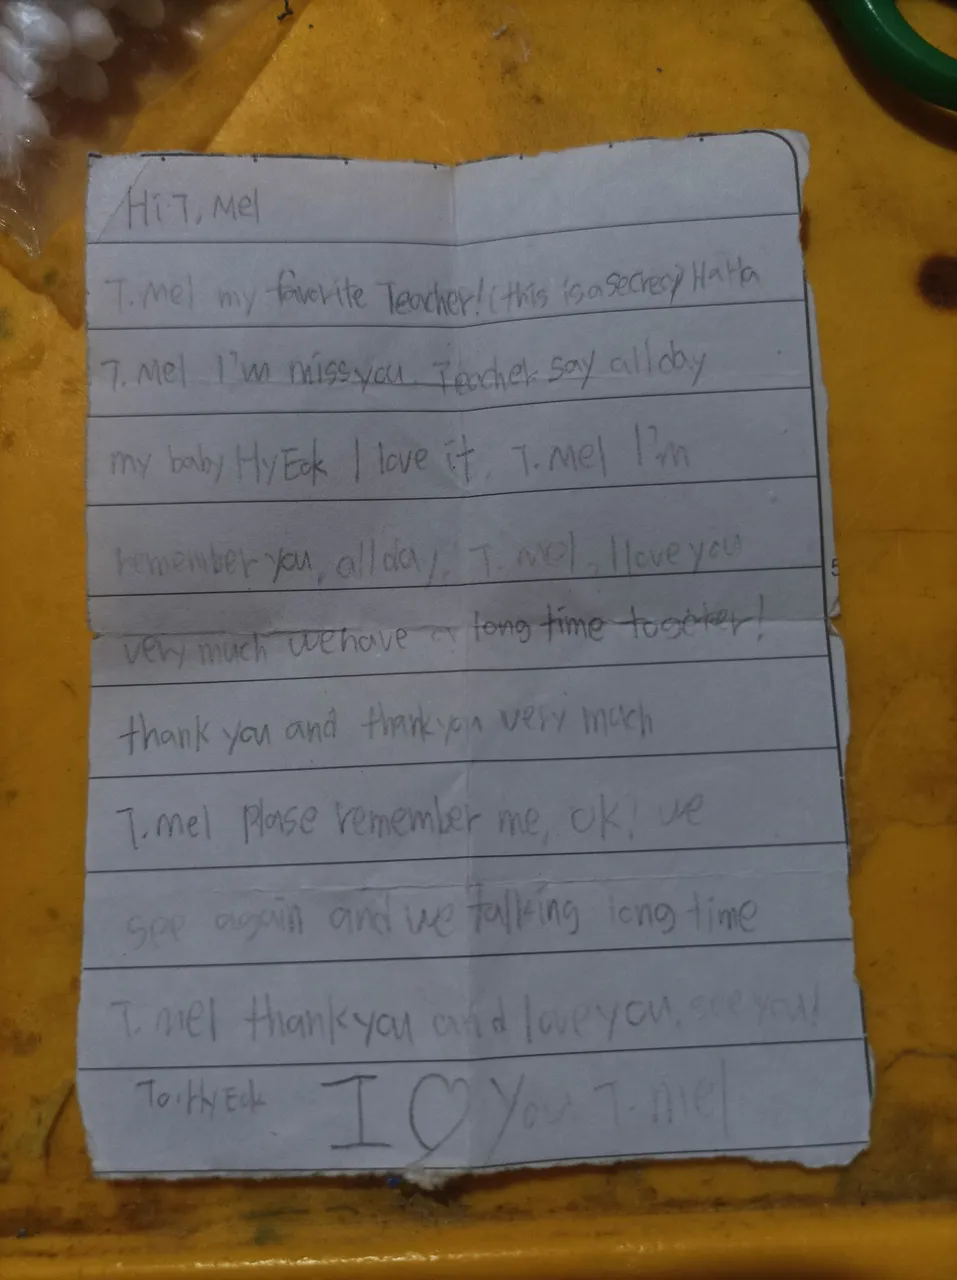 Hi. T, Mel
T. Mel my favorite Teacher! (this is a secrec) HaHa
T. Mel I'm miss you. Teacher say all day
my baby HyEok I love it. T. Mel I'm
remember you, all day. T. Mel, I love you
very much we have a long time togeter!
thank you and thank you very much
T. Mel plase remember me, ok! we
see again and we talking long time
T. Mel thank you and love you, see you!
To. HyEok I ♡ you T. mel
5